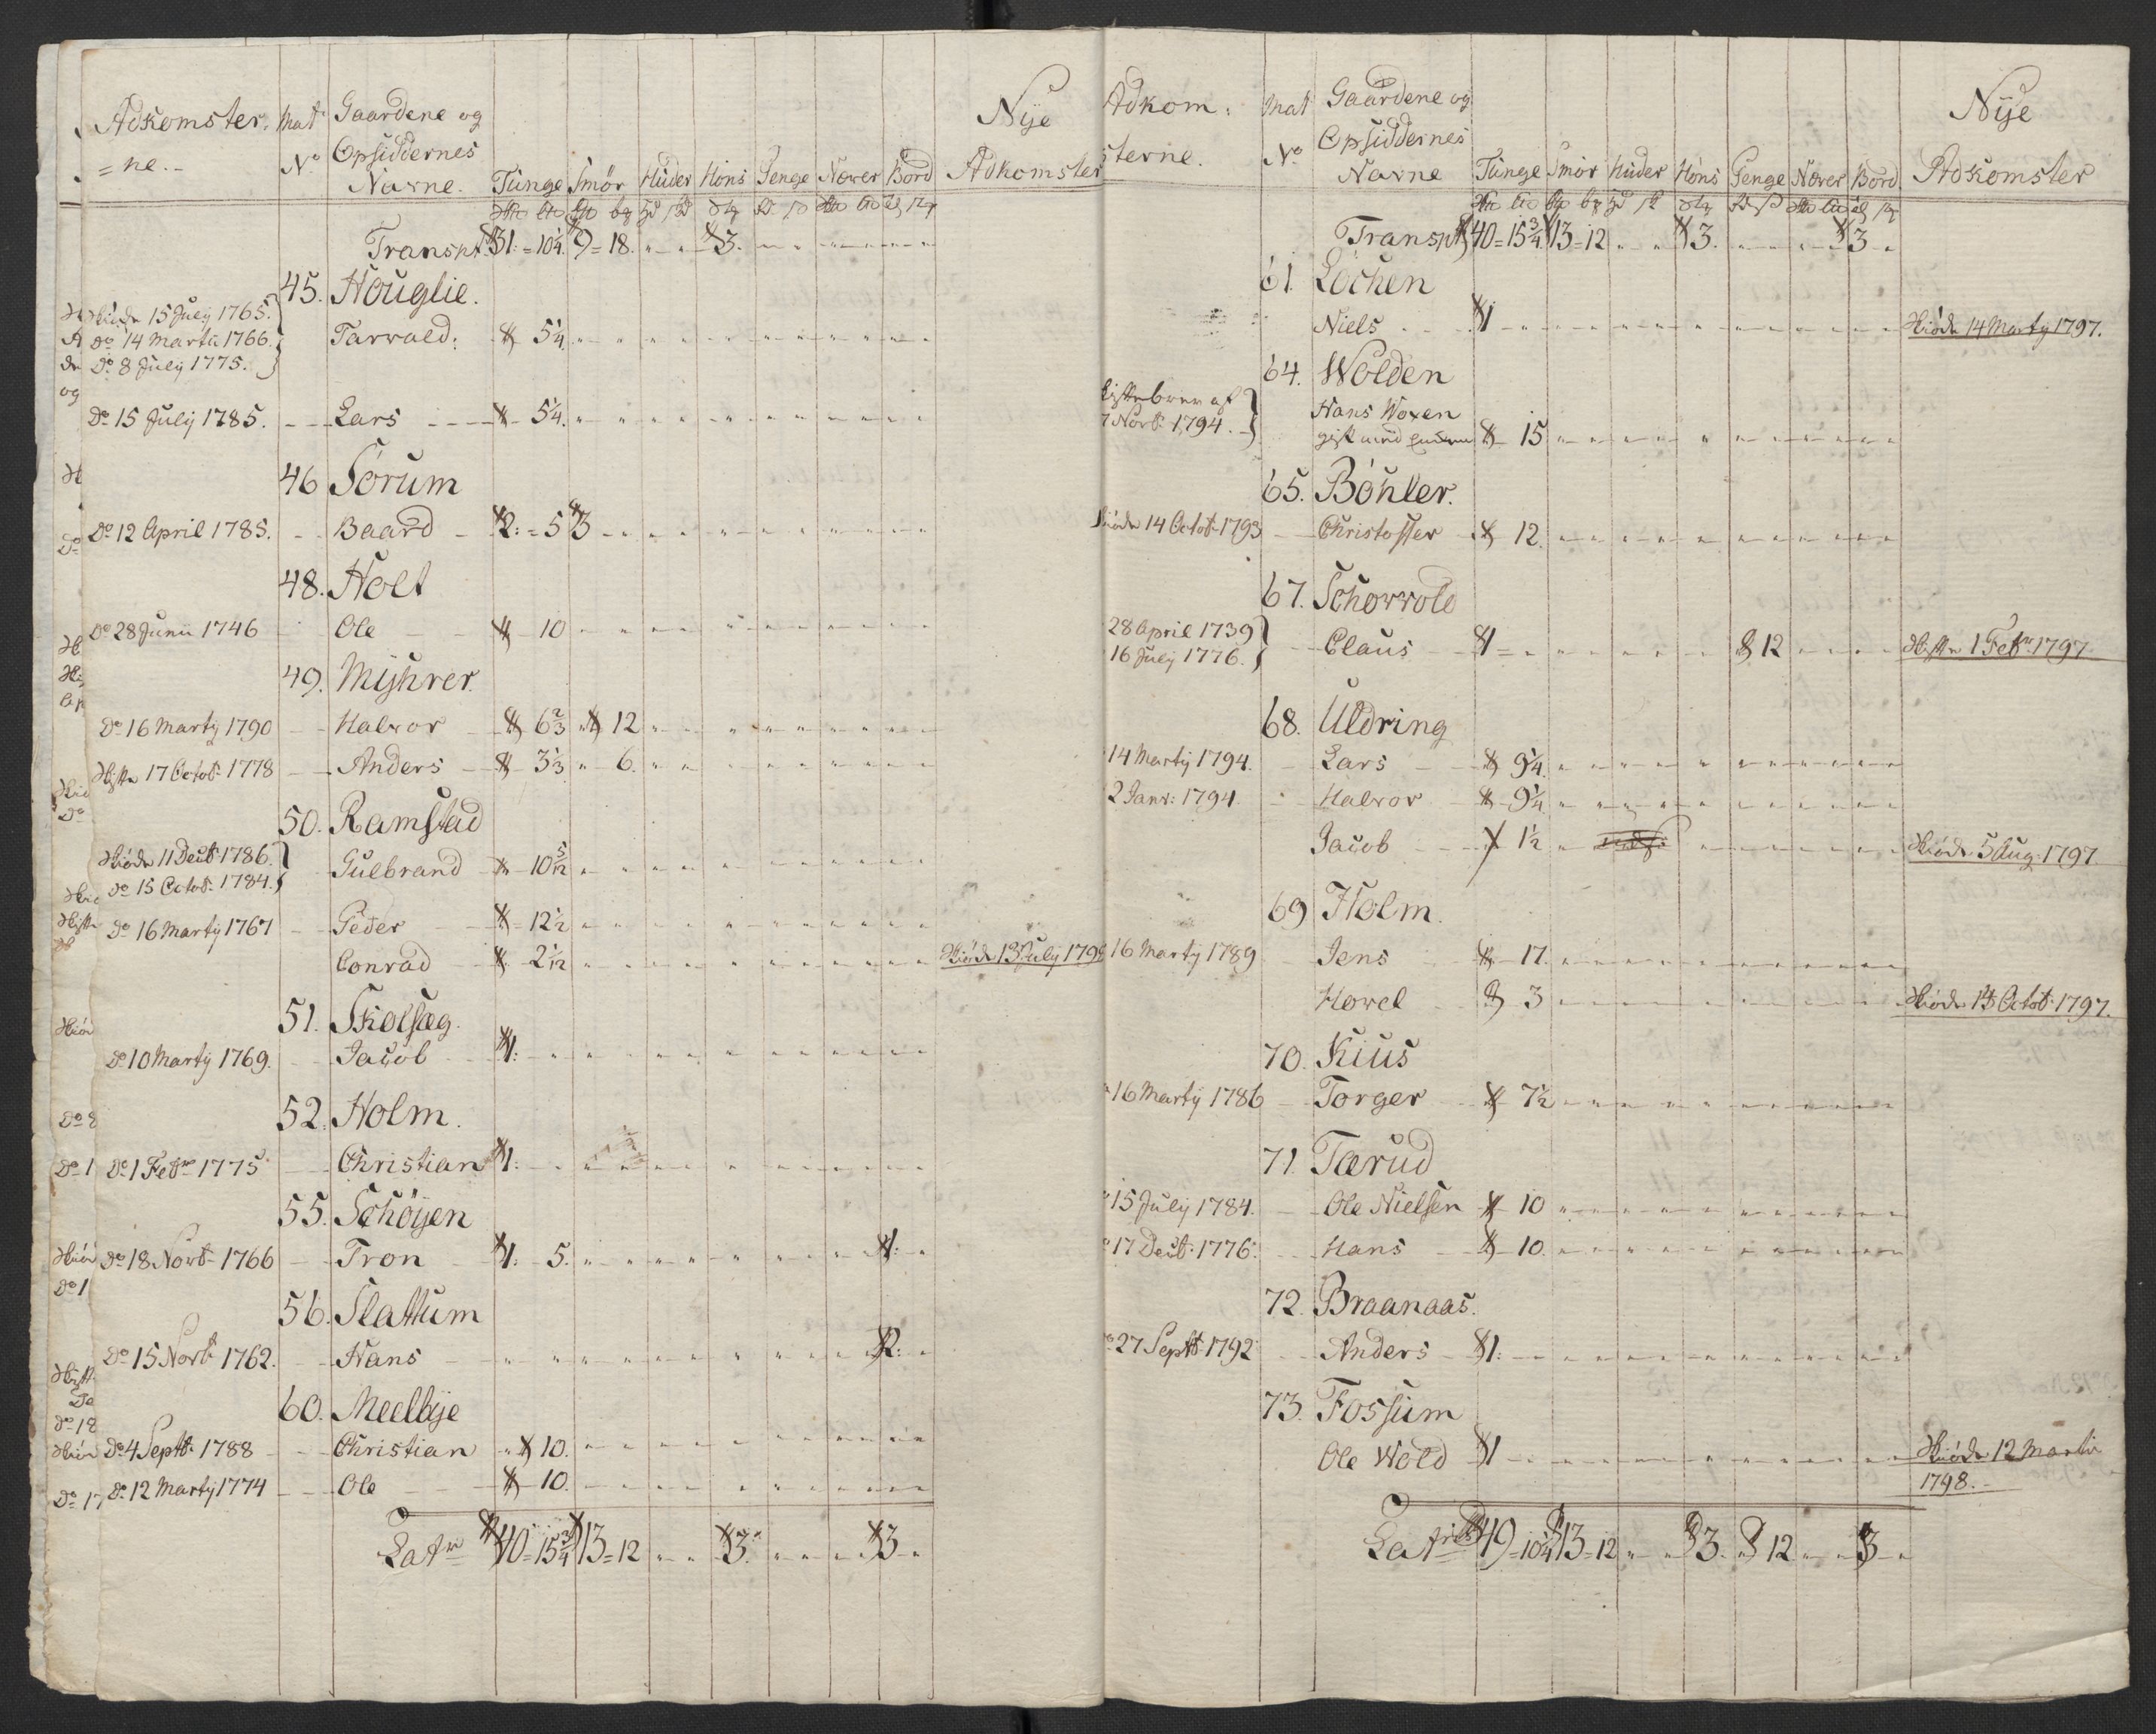 Adkomster= Mat Gaardene og
= ne. - No Opsiddernes Nÿe
Navne. Tunge Smør Huder Höns Penge Næver Bord Adkomster
Transpt 31: = 10¼. 9 = 18. " " 3. " "
45. Houglie.
Skiöde 15 Julÿ 1765.
Do 14 Martii 1766. Tarvald: 5¼
Do 8 Julÿ 1775.
Do 15 Julÿ 1785. Lars 5¼.
46 Sörum
Do 12 April 1785. Baard 2: = 5 3
48. Holt
Do 28 Junii 1746 Ole 10
49. Mÿhrer
Do 16 Martÿ 1790 Halvor 6⅔ 12
Do 17 Octob: 1778 Anders 3⅓ " 6.
50. Ramstad
Skiöde 11 Decb: 1786.
Do 15 Octob: 1784. Gulbrand 10 5/12
Do 16 Martÿ 1767 Peder 12½
Conrad 2 1/12 Skiöde 13 Julÿ
51. Skolsæg.
Do 10 Martÿ 1769. Jacob 1:
52. Holm.
Do 1 Febr 1775 Christian 1:
55. Schöÿen
Do 18 Novb: 1766 Tron 1: 5. 1:
56. Slattum
Do 15 Novb: 1762. Hans 2:
60. Meelbÿe
Do 4 Septb: 1788 Christian 10.
Do 12 Martÿ 1774 Ole 10.
Latr 40 = 15¾ 13 = 12 " " 3. 3
Adkom= Mat Gaardene og Nÿe
sterne. No Opsiddernes
Navne Tunge Smör Huder Höns Penge Næver Bord Adkomster
Transpt 40 = 15¾ 13 = 12 " " 3. 3
61. Löchen
Niels 1 Skiöde 14 Martÿ 1797.
64. Wolden
af Hans Woxen
7 Novb: 1794. gift med 15
65. Böhler.
Skiöde 14 Octob: 1793 Christoffer 12.
67. Schovvold
28 April 1739
16 Julÿ 1776. Claus 1 = 12 1 Febr 1797
68. Uldring
14 Martÿ 1794. Lars 9¼
2 Janv: 1794 Halvor 9¼
Jacob 1½ Skiöde 5 Aug. 1797.
69 Holm.
16 Martÿ 1789 Jens 17.
Hovel 3 Skiöde 14 Octob: 1797.
70. Kius
16 Martÿ 1786 Torger 7½
71. Tærud
15 Julÿ 1784. Ole Nielsen 10
17 Decb: 1776. Hans 10.
72. Braanaas.
27 Septb: 1792 Anders 1:
73. Fossum
Ole Wold 1 Skiöde 12 Martii
1798. -
Latr 49 = 10¼ 13 = 12 " " 3. 12 3